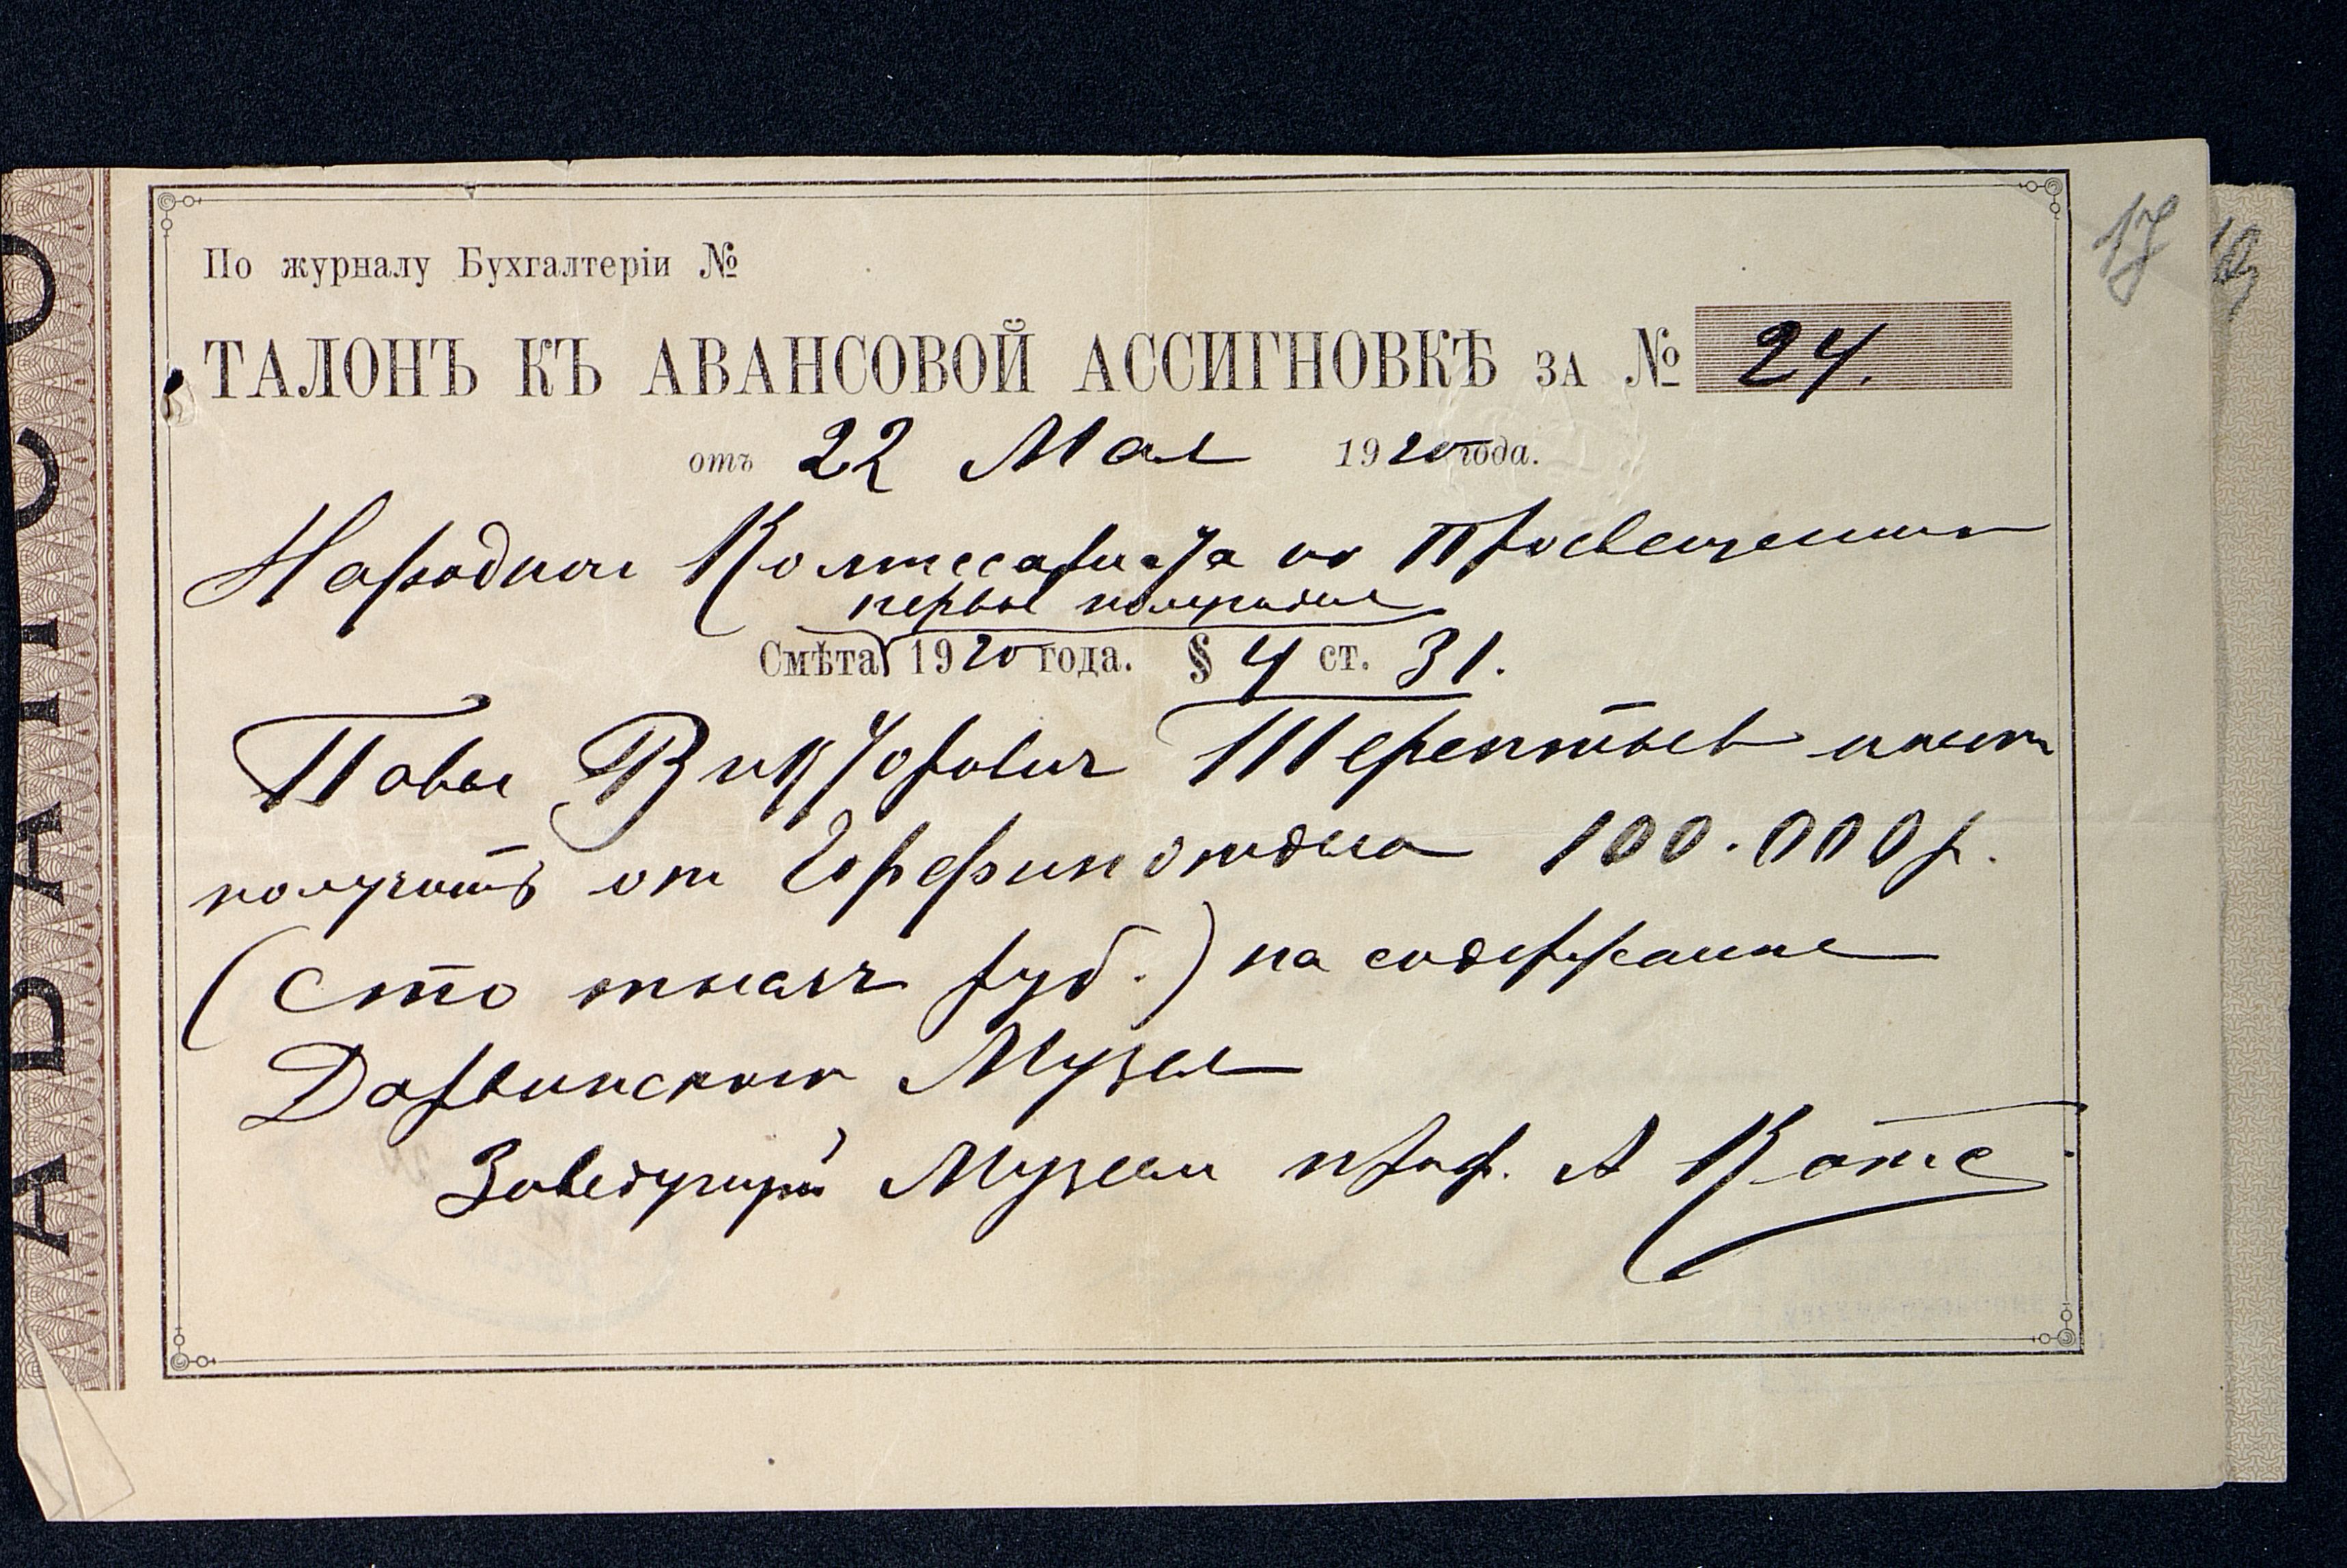 По журналу Бухгалтеріи №
17
ТАЛОНЪ КЪ АВАНСОВОЙ АССИГНОВКѢ ЗА № 24.
отъ 22 Мая 1920 года.
Народного Комиссариата по Просвещению
первое полугодие
Смѣта 1920 года. § 4 ст. 31.
Павел Викторович Терентьев имеет
получить от Горфинотдела 100.000 р.
(Сто тысяч руб.) на содержание
Дарвинского Музея
Заведующий Музеем проф. А Котс